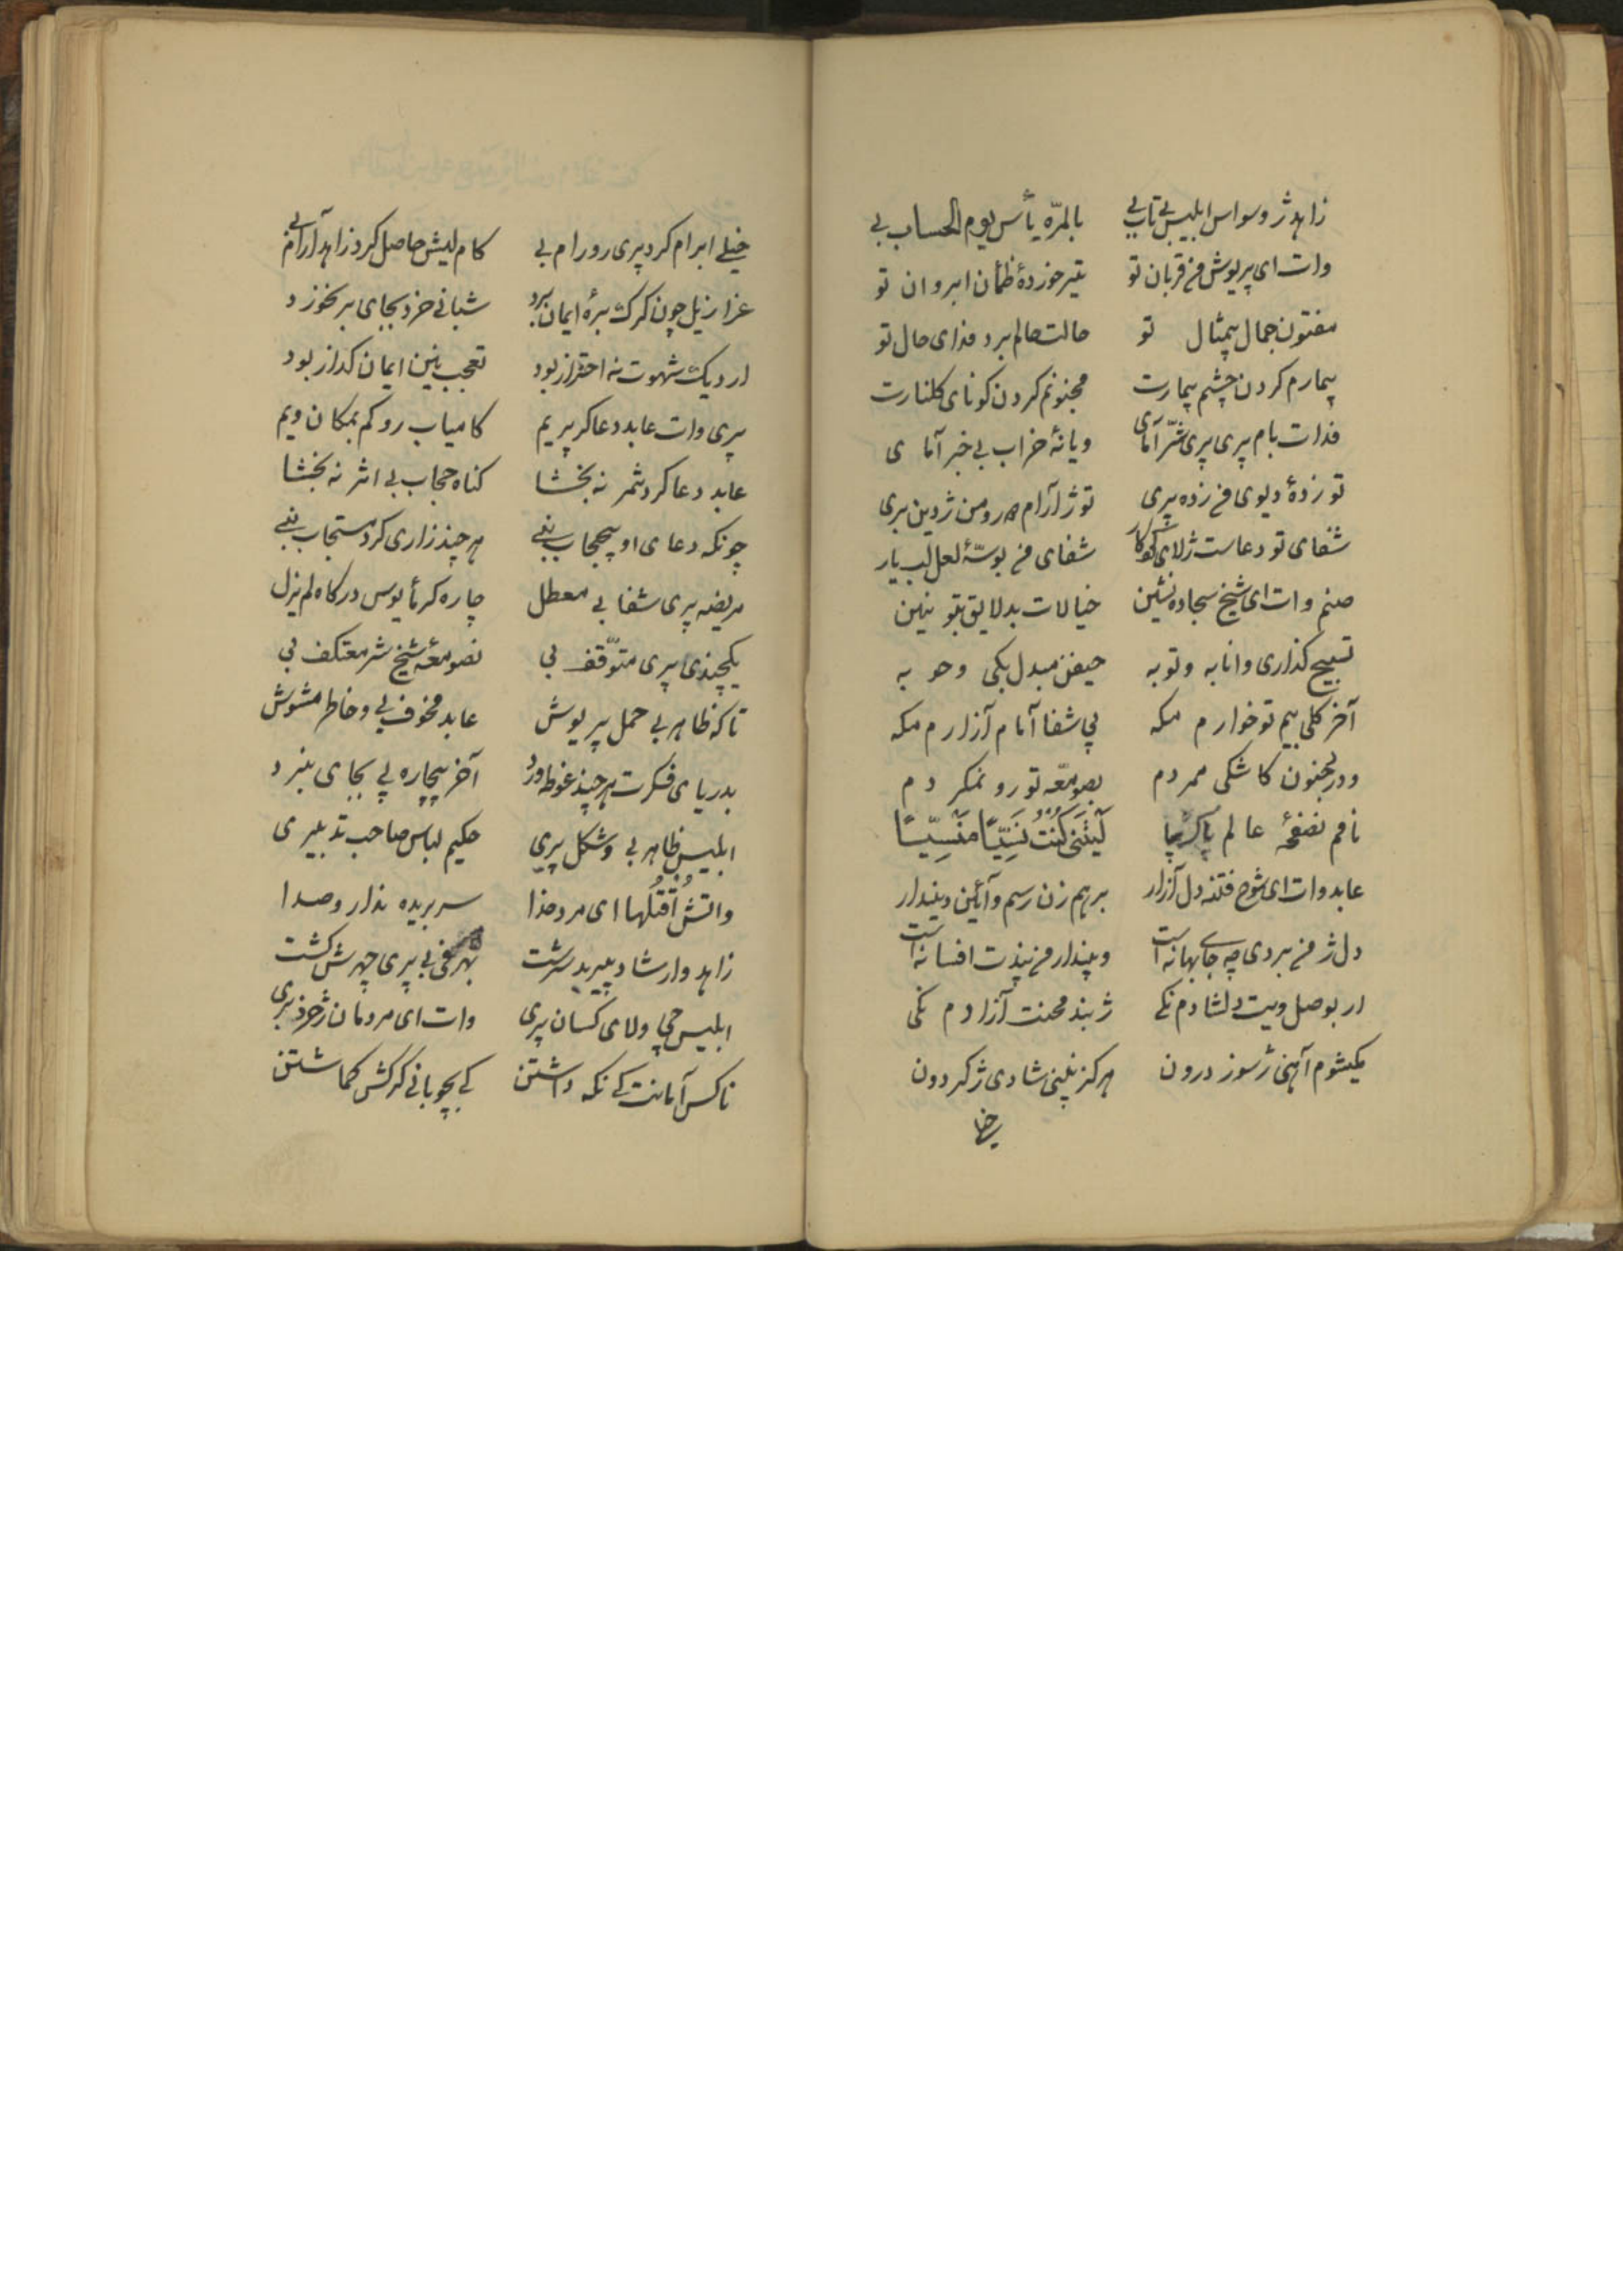 زاهد ژ وسواس ابلیس بی تاب بی بالمرّه یأس یوم الحساب بی
وات ای پریوش من قربان تو تیر خوردهٔ ظمأن ابروان تو
مفتون جمال بیمثال تو حالت حالم برد فدای حال تو
بیمارم کردن چشم بیمارت مجنونم کردن کونای کلنارت
فدات بام پری پری شرّ آمای ویانهٔ خراب بی خبر آمای
تو زدهٔ دیوی من زده پری تو ژ آرام و من ژ دین بری
شفای تو دعاست ژلای شفای من بوسّهٔ لعل لب یار
صنم وات ای شیخ سجاده نشین خیالات بد لایق بتو نین
تسبیح کذاری وانابه وتوبه حیفن مبدل بکی وحو به
آخر کلی بیم تو خوارم مکه پی شفا آمام آزارم مکه
ودر جنون کاشکی ممردم بصومعّه تو رو نمکردم
نافم نصفحهٔ عالم پاک بیا لَیتَنی کُنتُ نَسِیًّا مَنسِیًّا
عابد وات ای شوخ فتنه دل آزار برهم زن رسم وآئین ویندار
دل ژ من بردی چه جای بهانه است ویندار من پندت افسانه است
ار بوصل ویت دلشادم نکی ژ بند محنت آزادم نکی
یکیشوم آهنی ژ سوز درون هرکز نلینی شادی ژ کردون
خیلی
خیلی ابرام کرد پری رو رام بی کام لیش حاصل کرد زاهد آرام بی
عزازیل چون کرک برهٔ ایمان برد شبانی خرد بجای بر نخورد
ار دیک شهوت نه احتراز بود تعجب نین ایمان کداز بود
پری وات عابد دعا کر پریم کامیاب رو کم بمکان ویم
عابد دعا کرد ثمر نه بخشا کناه حجاب بی اثر نه بخشا
چونکه دعای او بیحجاب نبی هر چند زاری کرد مستجاب نبی
مریضه پری شفا بی معطل چاره کر مأیوس درکاه لم یزل
یکچندی پری متوّقف بی نصومعّه شیخ شر معتکف بی
تاکه ظاهر بی حمل پریوش عابد مخوف بی وخاطر مشوش
بدریای فکرت هر چند غوطه ورد آخر بیچاره پی بجای نبرد
ابلیس ظاهر بی وشکل پری حکیم لباس صاحب تدبیری
واتش اُقتُلها ای مرد خدا سر بریده ندار وصدا
زاهد وارشاد پیر بد سرشت بهر مخفی بی پری چهرش کشت
ابلیس چی ولای کسان پری وات ای مردمان ژ خرد بری
ناکس آمانت کی نکه داشتن کی بچوبانی کرکش کماشتن